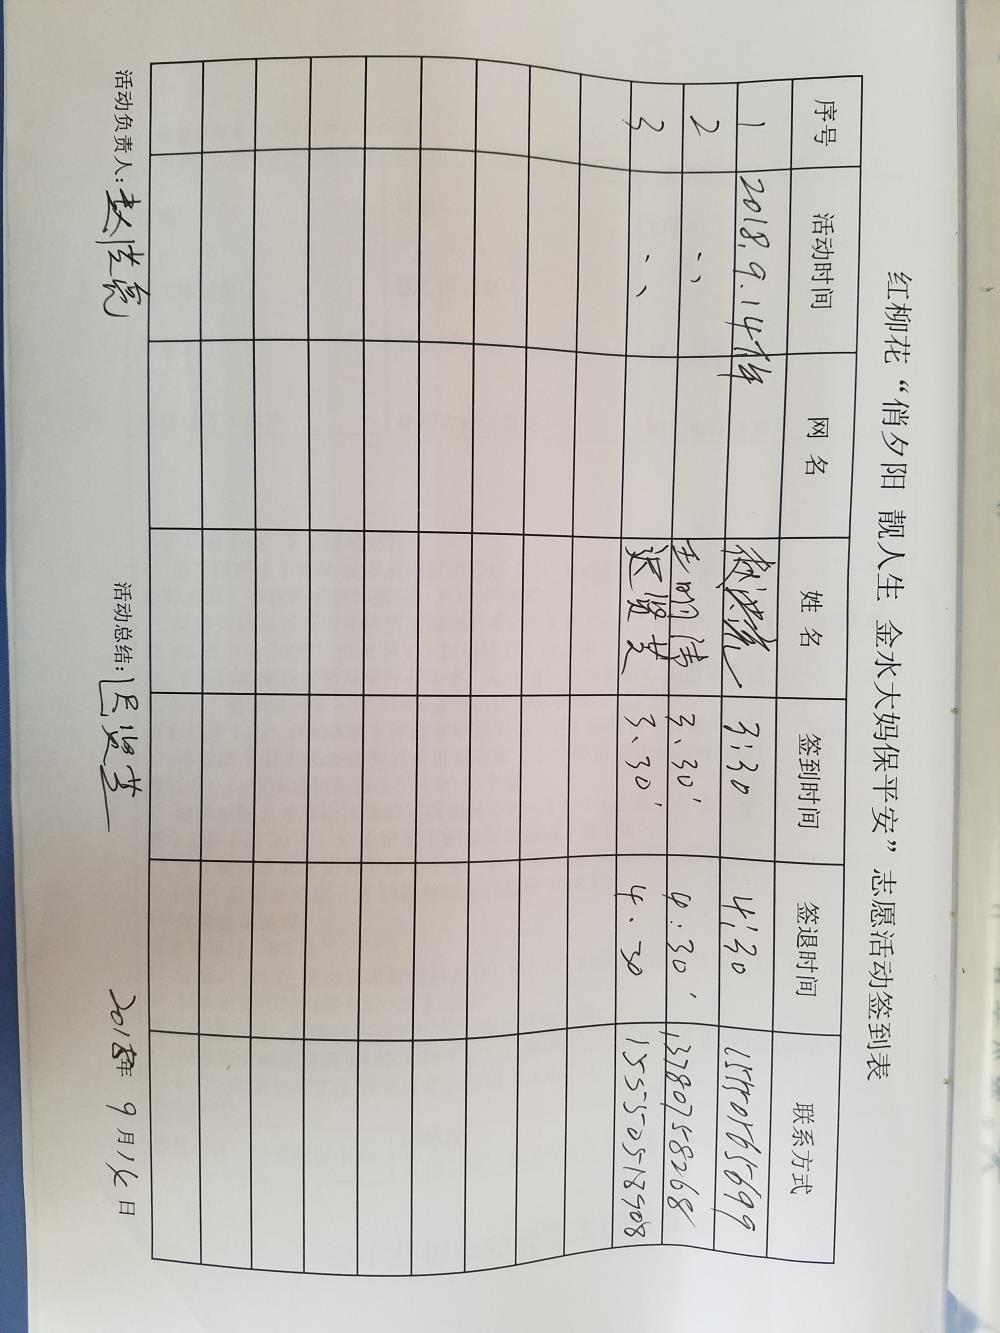 红柳花“俏夕阳 靓人生 金水大妈保平安”志愿活动签到表
序号 活动时间 网名 姓名 签到时间 签退时间 联系方式
1 2018.9.14 3:30 4:30
2 、、 3.30' 4:30' 13780758268
3 、、 迟贤芝 3、30' 4.30
活动负责人: 活动总结:迟贤芝 2018年9月14日